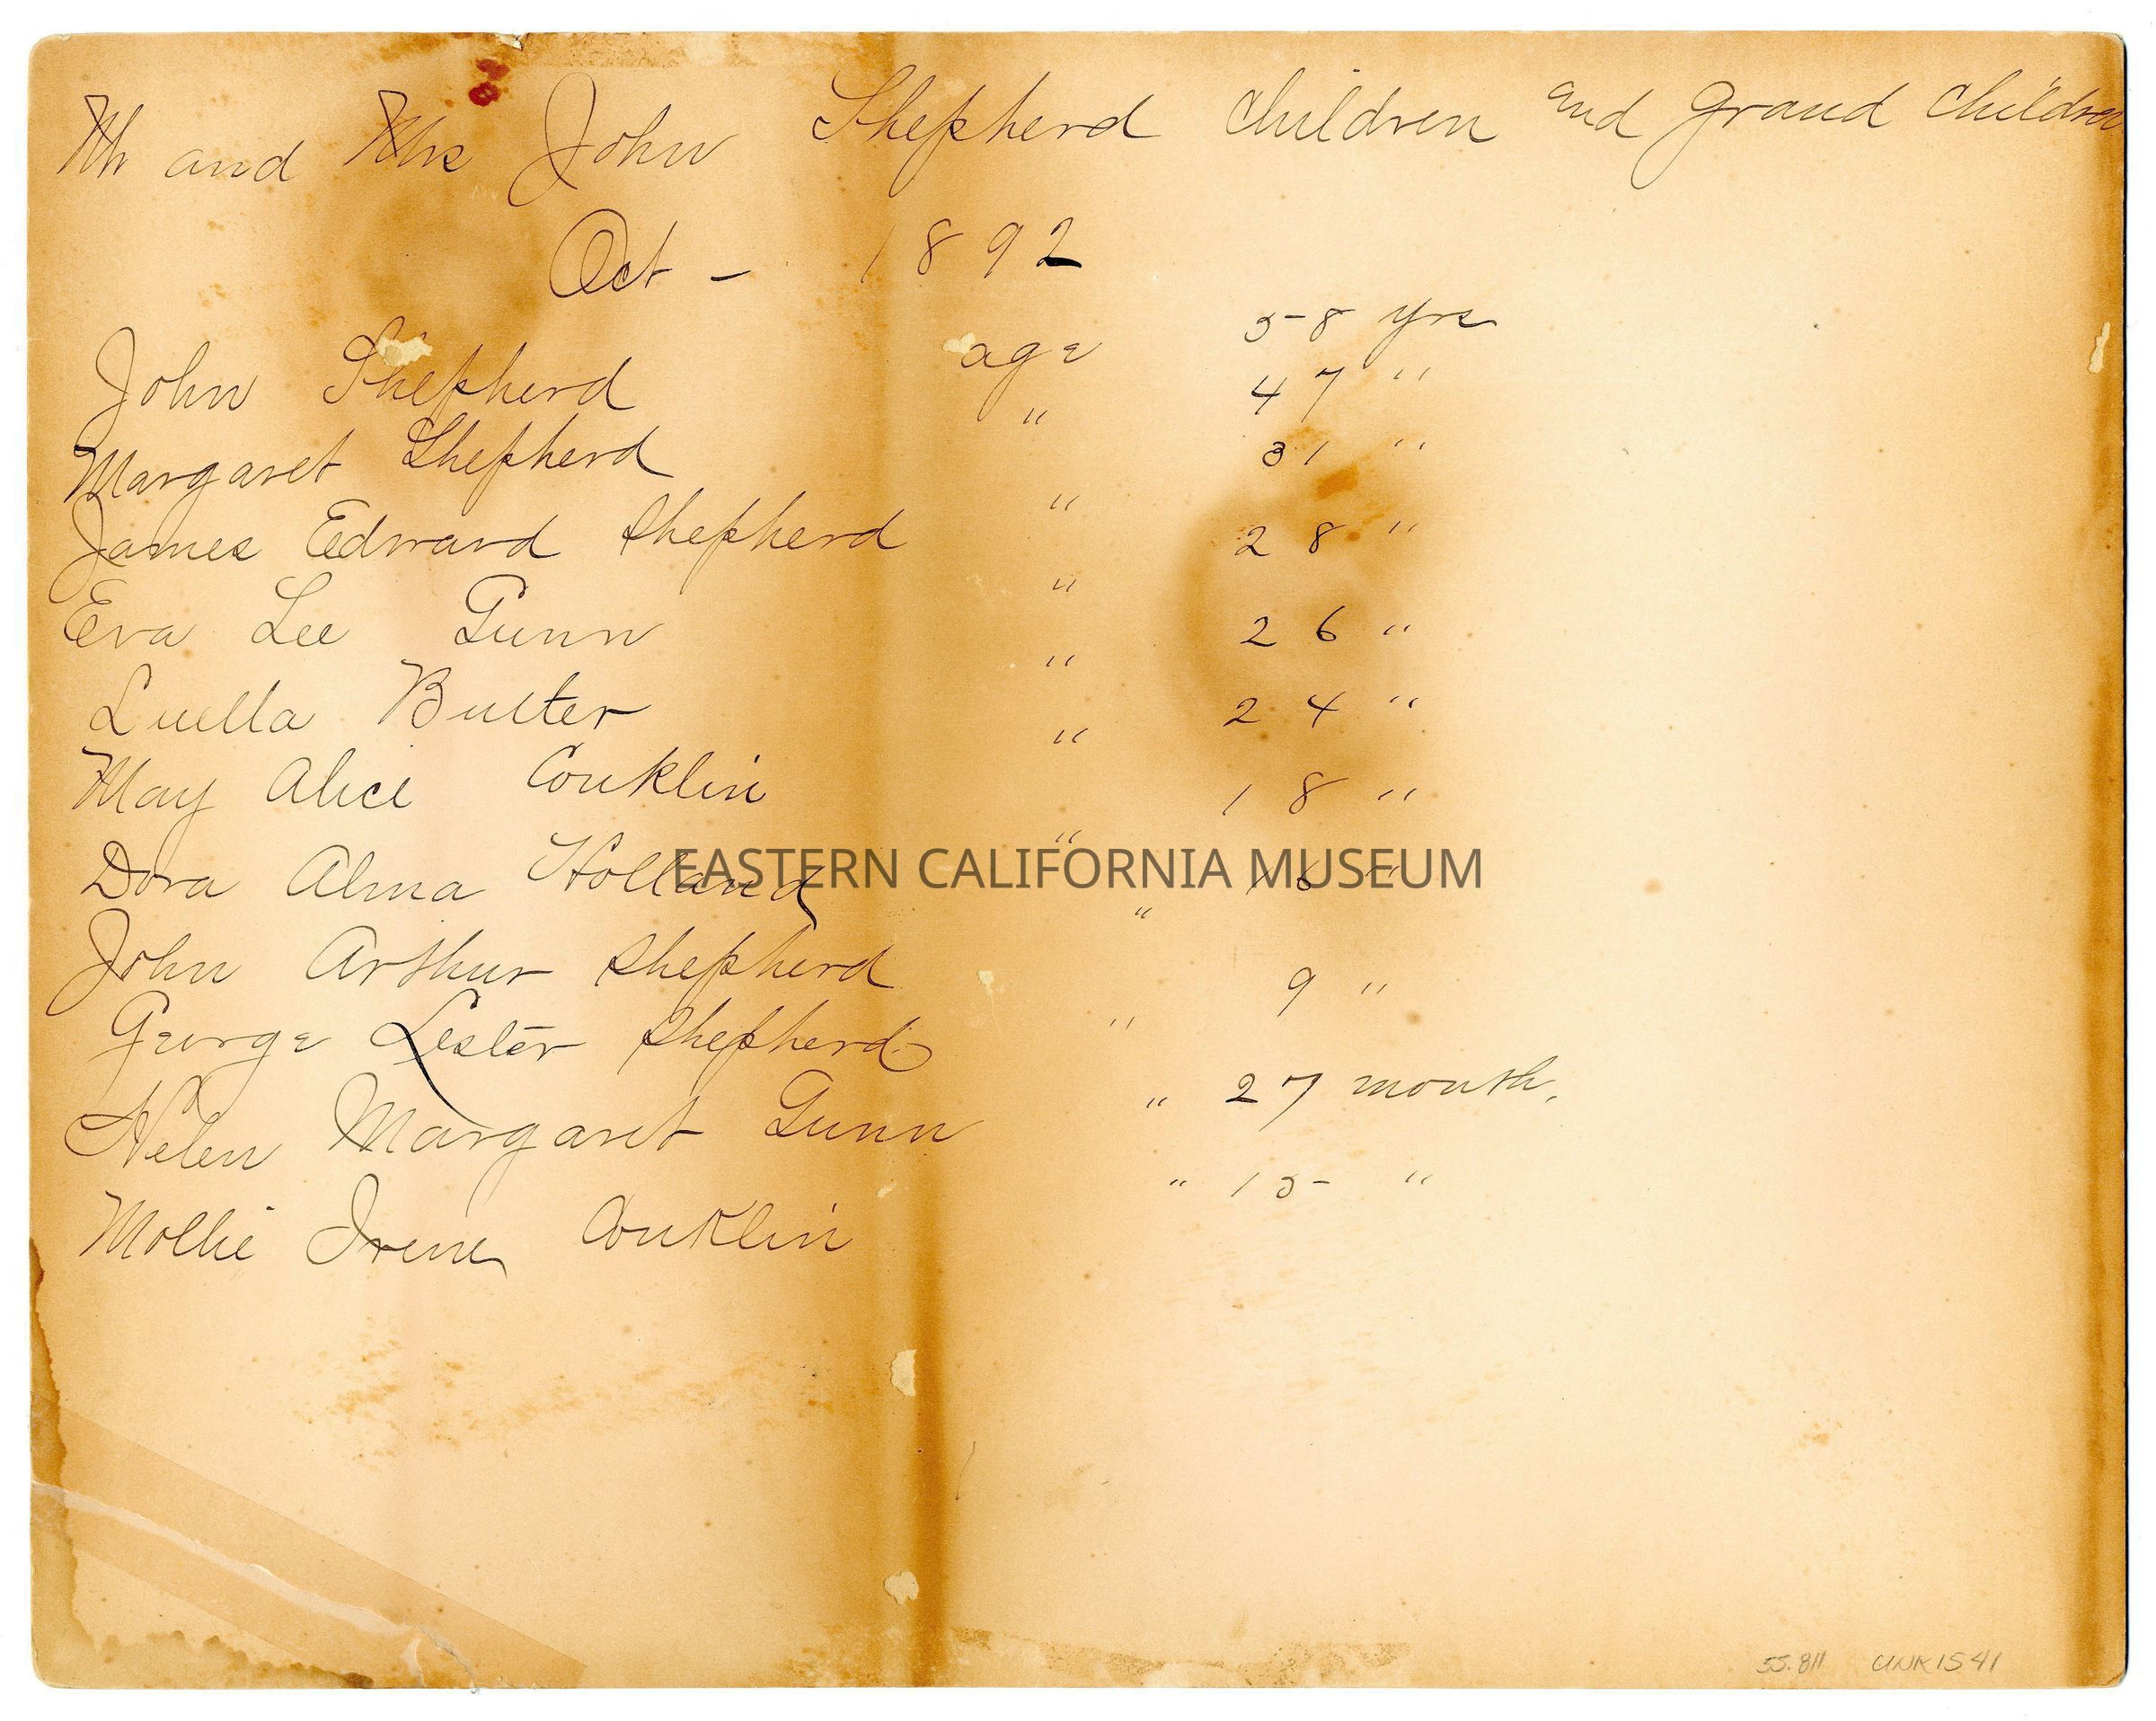 Mr and Mrs John Shepherd children and grand children
Oct - 1892
John Shepherd age 58 yrs
Margaret Shepherd " 47 "
James Edward Shepherd " 31 "
Eva Lee Gunn " 28 "
Luella Butter " 26 "
May Alice Conklin " 24 "
Dora Alma Holland " 18 "
John Arthur Shepherd " "
George Lester Shepherd " 9 "
Helen Margaret Gunn " 27 month,
Mollie Irene Conklin " 15 "
EASTERN CALIFORNIA MUSEUM
55.811 UNK1541